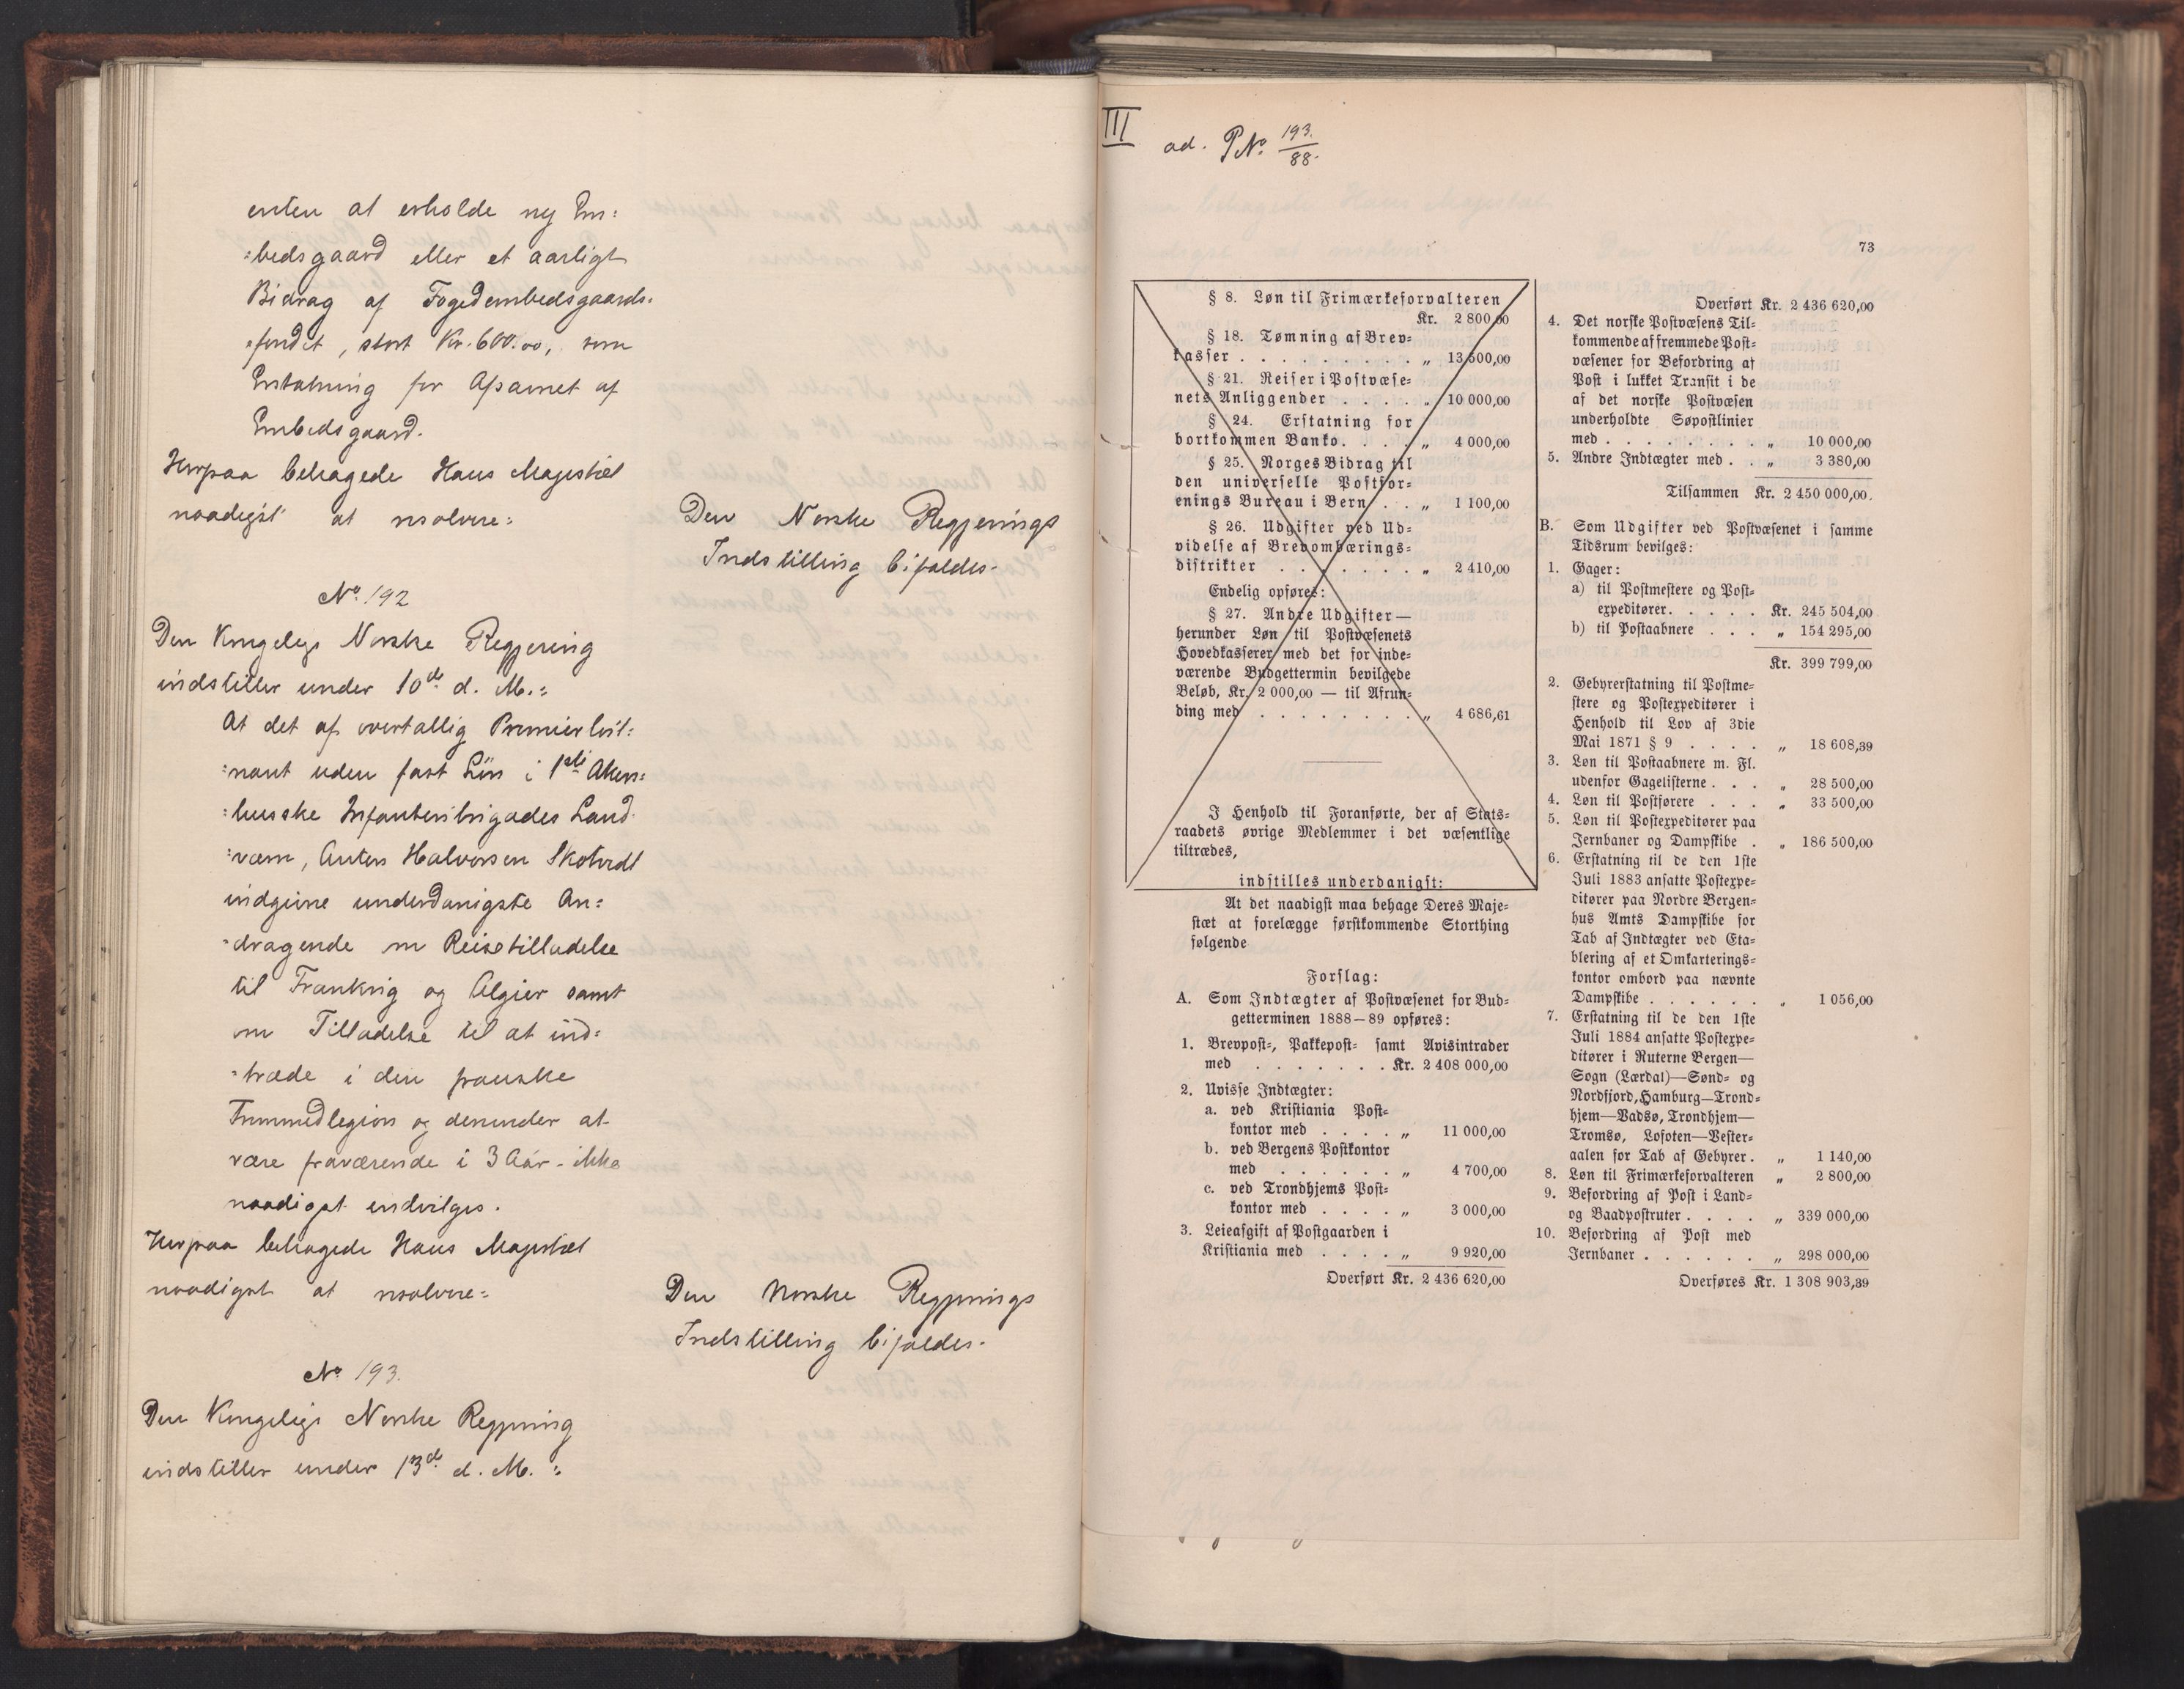 enten at erholde ny Em=
=bedsgaard eller et aarligt
Bidrag af Fogedembedsgaards=
=fondet, stort Kr. 600.00, som
Erstatning for Afsavnet af
Embedsgaard.
Herpaa behagede Hans Majestæt
naadigst at resolvere:
Den Norske Regjerings
Indstilling bifaldes.
No. 192
Den Kongelige Norske Regjering
indstiller under 10de d. M.:
At det af overtallig Premierlieut=
=nant uden fast Løn i 1ste Akers=
=husske Infanteribrigades Land=
=værn, Anton Halvorsen Skotvedt
indgivne underdanigste An=
=dragende om Reisetilladelse
til Frankrig og Algier samt
om Tilladelse til at ind=
=træde i den franske
Fremmedlegion og derunder at
være fraværende i 3 Aar – ikke
naadigst indvilges.
Herpaa behagede Hans Majestæt
naadigst at resolvere:
Den Norske Regjerings
Indstilling bifaldes.
No. 193.
Den Kongelige Norske Regjering
indstiller under 13de d. M.:
III
ad. P No. 193./88.
73
§ 8. Løn til Frimærkeforvalteren
Kr. 2 800,00
§ 18. Tømning af Brev=
kasser . . . . . . . . . „ 13 500,00
§ 21. Reiser i Postvæse=
nets Anliggender . . . . „ 10 000,00
§ 24. Erstatning for
bortkommen Banko. . . . „ 4 000,00
§ 25. Norges Bidrag til
den universelle Postfor=
enings Bureau i Bern . . „ 1 100,00
§ 26. Udgifter ved Ud=
videlse af Brevombærings=
distrikter . . . . . . . „ 2 410,00
Endelig opføres:
§ 27. Andre Udgifter —
herunder Løn til Postvæsenets
Hovedkasserer med det for inde=
værende Budgettermin bevilgede
Beløb, Kr. 2 000,00 — til Afrun=
ding med . . . . . . . . „ 4 686,61
I Henhold til Foranførte, der af Stats=
raadets øvrige Medlemmer i det væsentlige
tiltrædes,
indstilles underdanigst:
At det naadigst maa behage Deres Maje=
stæt at forelægge førstkommende Storthing
følgende
Forslag:
A. Som Indtægter af Postvæsenet for Bud=
getterminen 1888—89 opføres:
1. Brevpost=, Pakkepost= samt Avisintrader
med . . . . . . . Kr. 2 408 000,00
2. Uvisse Indtægter:
a. ved Kristiania Post=
kontor med . . . . „ 11 000,00
b. ved Bergens Postkontor
med . . . . . . „ 4 700,00
c. ved Trondhjems Post=
kontor med . . . . „ 3 000,00
3. Leieafgift af Postgaarden i
Kristiania med . . . . „ 9 920,00
Overført Kr. 2 436 620,00
Overført Kr. 2 436 620,00
4. Det norske Postvæsens Til=
kommende af fremmede Post=
væsener for Befordring af
Post i lukket Transit i de
af det norske Postvæsen
underholdte Søpostlinier
med . . . . . . . . „ 10 000,00
5. Andre Indtægter med . . „ 3 380,00
Tilsammen Kr. 2 450 000,00.
B. Som Udgifter ved Postvæsenet i samme
Tidsrum bevilges:
1. Gager:
a) til Postmestere og Post=
expeditører. . . . . Kr. 245 504,00
b) til Postaabnere . . . „ 154 295,00
Kr. 399 799,00
2. Gebyrerstatning til Postme=
stere og Postexpeditører i
Henhold til Lov af 3die
Mai 1871 § 9 . . . . „ 18 608,39
3. Løn til Postaabnere m. Fl.
udenfor Gagelisterne . . . „ 28 500,00
4. Løn til Postførere . . . „ 33 500,00
5. Løn til Postexpeditører paa
Jernbaner og Dampskibe . „ 186 500,00
6. Erstatning til de den 1ste
Juli 1883 ansatte Postexpe=
ditører paa Nordre Bergen=
hus Amts Dampskibe for
Tab af Indtægter ved Eta=
blering af et Omkarterings=
kontor ombord paa nævnte
Dampskibe . . . . . . „ 1 056,00
7. Erstatning til de den 1ste
Juli 1884 ansatte Postexpe=
ditører i Ruterne Bergen—
Sogn (Lærdal)—Sønd= og
Nordfjord, Hamburg—Trond=
hjem—Vadsø, Trondhjem—
Tromsø, Lofoten—Vester=
aalen for Tab af Gebyrer . „ 1 140,00
8. Løn til Frimærkeforvalteren „ 2 800,00
9. Befordring af Post i Land=
og Baadpostruter . . . . „ 339 000,00
10. Befordring af Post med
Jernbaner . . . . . . „ 298 000,00
Overføres Kr. 1 308 903,39